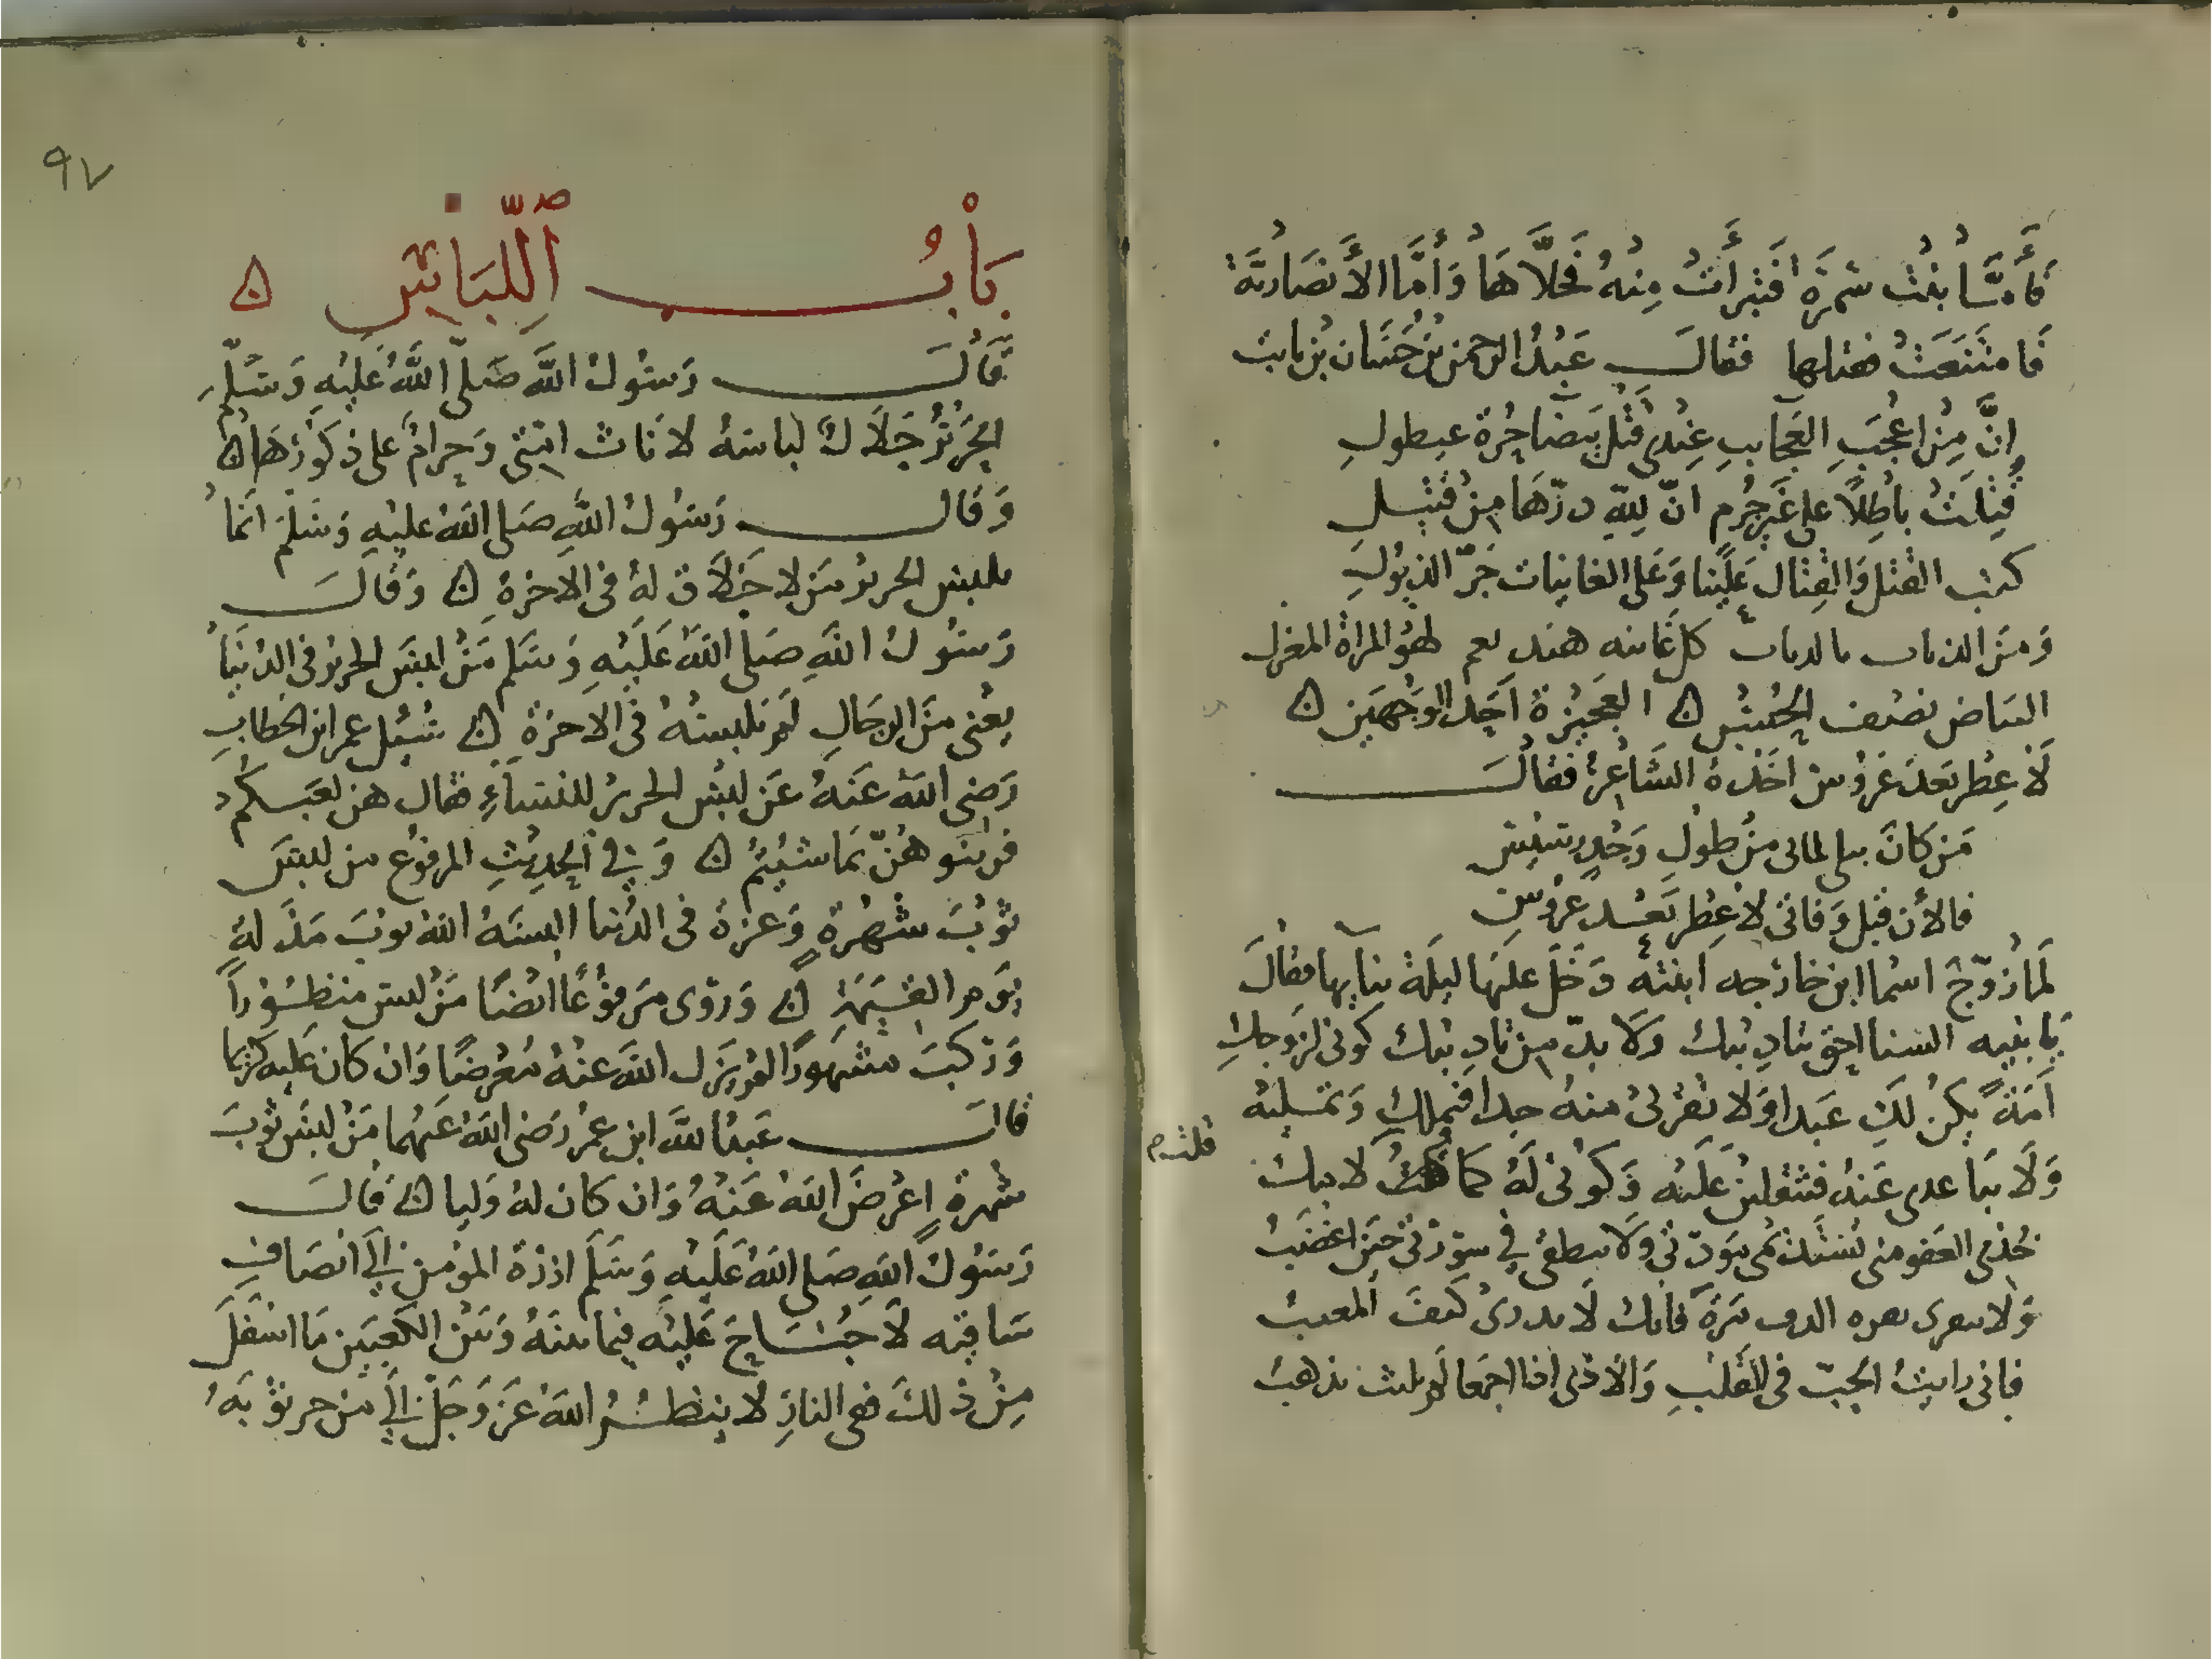 فَأَمَّا بنْتُ سَمُرَةَ فَتبرأَتْ مِنْهُ فَخلَّاهَا وَأَمَّا الأَنصَاريَّة
فَامتَنَعَتْ فقتلها فقالَ عَبْدُ الرحمن بْنُ حَسَّان بْن ثابت
إنَّ مِنْ اعْجَبِ العَجَايبِ عِنْدِي قَتْلَ بَيضَا حُرَّة عيطولِ
قُتِلَتْ بَاطِلًا على غَير جُرم انّ لِلّهِ درّهَا مِنْ قتيلِ
كتب القتل وَالقِتال عَلَيْنا وَعَلى الغانيات جَرّ الذيُولِ
وَمِنَ الديات كل غانيه هند نعم لهْوُ المراة المغزل
البيَاض نصْف الحُسْنِ ۞ العَجيْزة احَد الوَجْهَين ۞
لَا عِطْر بَعدَ عَرُوس أخَذَهُ الشَاعِرُ فقالَ
مَن كَانَ يبلى لمالى مِنْ طولِ وَجْدٍ رسيْسِ
فالأن قبل وَفاتى لا عِطْر بَعْد عَرُوسِ
لَما زوّجَ اسما ابن خارجه ابنتهُ دَخَل عليَها ليلَة بنآيها فقالَ
يَا بنيه النسا احق بتادِيبك وَلَا بدّ مِن تادِيبك كوُنى لزوجكِ
اَمَةً يكنْ لكِ عَبدا وَلا تقْربى منهُ جدا فيملكِ وَتمليْه
وَلَا تباعدى عَنهُ فتثقلين عَليْه وَكوُنى لَهُ كما قلت لامك
خُذى العَفو منى تَسْتَديْمى مَودّتى وَلَا تنطقى فى سورَتى حينَ اغْضَبُ
وَلا تنقرى نقره الدف مَرّةً فانك لَا تدرى كيفَ المغيبُ
فانى رايتُ الحُبّ فى القَلبِ وَالاذى اذا اجتمعا لم يلبث يذهبُ
قلت م
٩٧
بَابُ اللِّبَاسِ ۞
قَالَ رَسُولُ اللَّه صَلّى اللَّهُ عَليْهِ وَسَلّم
الحَرِيْرُ حَلَالٌ لباسهُ لاناث امتى وَحرامٌ على ذكوُرِهَا ۞
وَقالَ رَسُولُ اللَّهِ صَلى اللَّهُ عليْهِ وَسَلمَ انمَا
يلبس الحرير مَن لا خَلاق لهُ فى الاخرة ۞ وَقالَ
رَسُولُ اللَّهِ صَلى اللَّهُ عَلَيْهِ وَسَلم مَنْ لبسَ الحرير فى الدنيَا
يعْنى مِنَ الرجَالِ لَم يلبسْهُ فى الاخرَة ۞ سُئِل عمر ابن الخطابِ
رَضى اللَّه عَنهُ عَن لبْس الحرير للنسَاءِ فقال هن لعَبكم
فزينوهُنّ بمَا شئتم ۞ وَفى الحدِيْثِ المرفوْع من لبسَ
ثوْبَ شهْرةٍ وَعزة فى الدُنيا البسَهُ اللَّه ثوبَ مَذَلهٍ
يَوم القيمَةِ ۞ وَروى مَرفوْعًا ايْضًا مَنْ لبس منظوُرًا
وَركبَ مشهورًا لم يَزل اللَّهُ عنْهُ مُعْرضًا وَان كان عَليه كريما
قالَ عَبدُ اللَّه ابن عُمر رَضى اللَّهُ عَنهُما مَنْ لبسَ ثوبَ
شهرة اعْرَضَ اللَّهُ عَنهُ وَان كان لهُ وَليا ۞ قَالَ
رَسُولُ اللَّهِ صَلى اللَّهُ عَلَيْهِ وَسَلَّمَ ازرَة المؤمن الَى انصَافِ
سَاقيْه لَا جُنَاحَ عَليْه فيما بينَهُ وَبيْن الكعبَين مَا اسْفَلَ
مِنْ ذلكَ ففى النارِ لا ينظُرُ اللَّهُ عَزَ وَجَلّ الى مَن جر ثوْبَهُ